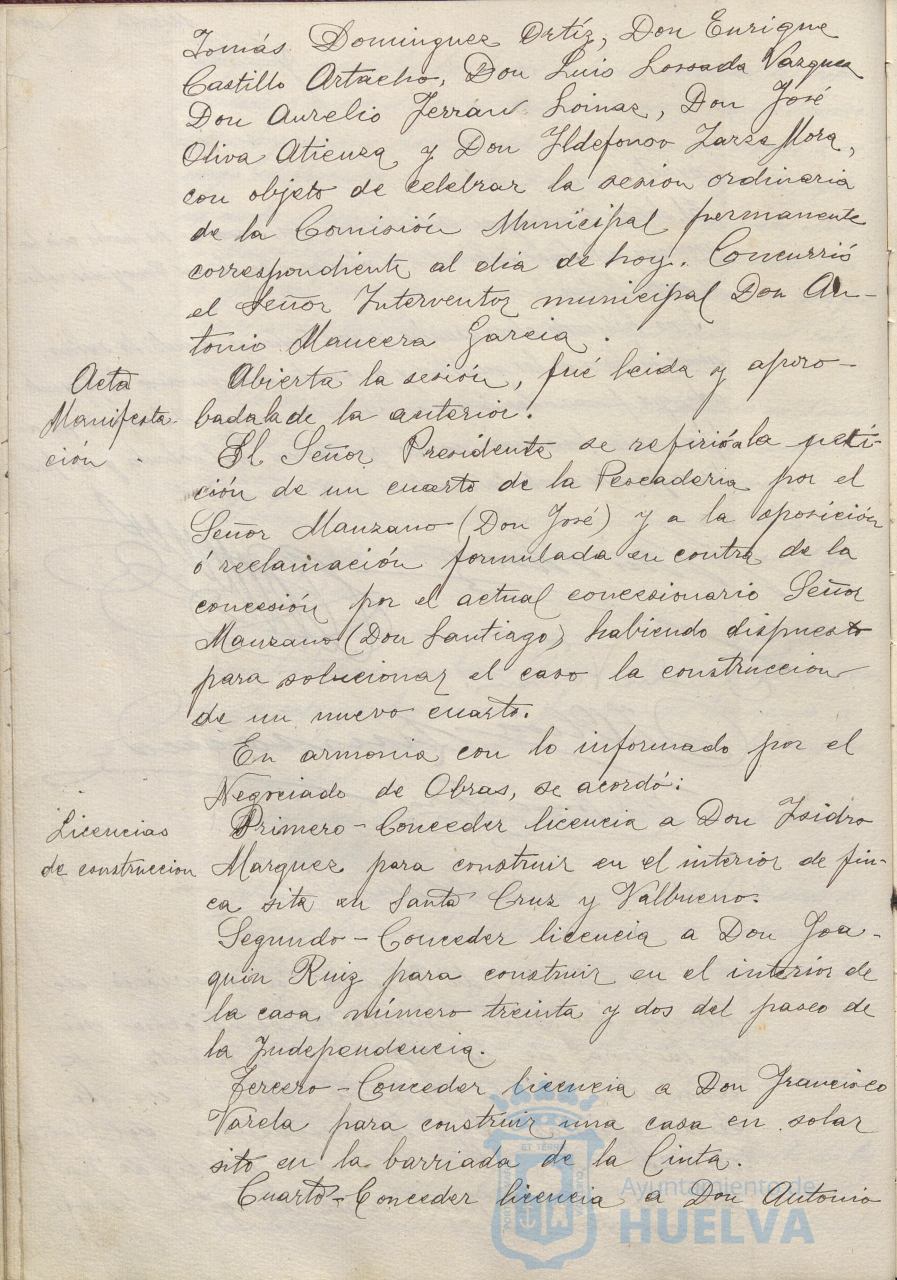 Tomás Dominguez Ortíz, Don Enrique
Castillo Artacho, Don Luis Lossada Vazquez
Don Aurelio Ferrán Loinaz, Don José
Oliva Atienza y Don Ildefonso Zarza Mora,
con objeto de celebrar la sesion ordinaria
de la Comisión Municipal permanente
correspondiente al dia de hoy. Concurrió
el Señor Interventor municipal Don An-
tonio Mancera Garcia.
Acta
Abierta la sesión, fué leida y apro-
bada la de la anterior.
Manifesta-
ción.
El Señor Presidente se refirió a la peti-
ción de un cuarto de la Pescaderia por el
Señor Manzano (Don José) y a la oposición
ó reclamación formulada en contra de la
concesión por el actual concesionario Señor
Manzano (Don Santiago) habiendo dispuesto
para solucionar el caso la construccion
de un nuevo cuarto.
En armonia con lo informado por el
Negociado de Obras, se acordó:
Licencias
de construccion
Primero - Conceder licencia a Don Isidro
Marquez para construir en el interior de fin-
ca sita en Santa Cruz y Valbueno.
Segundo - Conceder licencia a Don Joa-
quin Ruiz para construir en el interior de
la casa número treinta y dos del paseo de
la Independencia.
Tercero - Conceder licencia a Don Francisco
Varela para construir una casa en solar
sito en la barriada de la Cinta.
Cuarto - Conceder licencia a Don Antonio
Ayuntamiento de
HUELVA